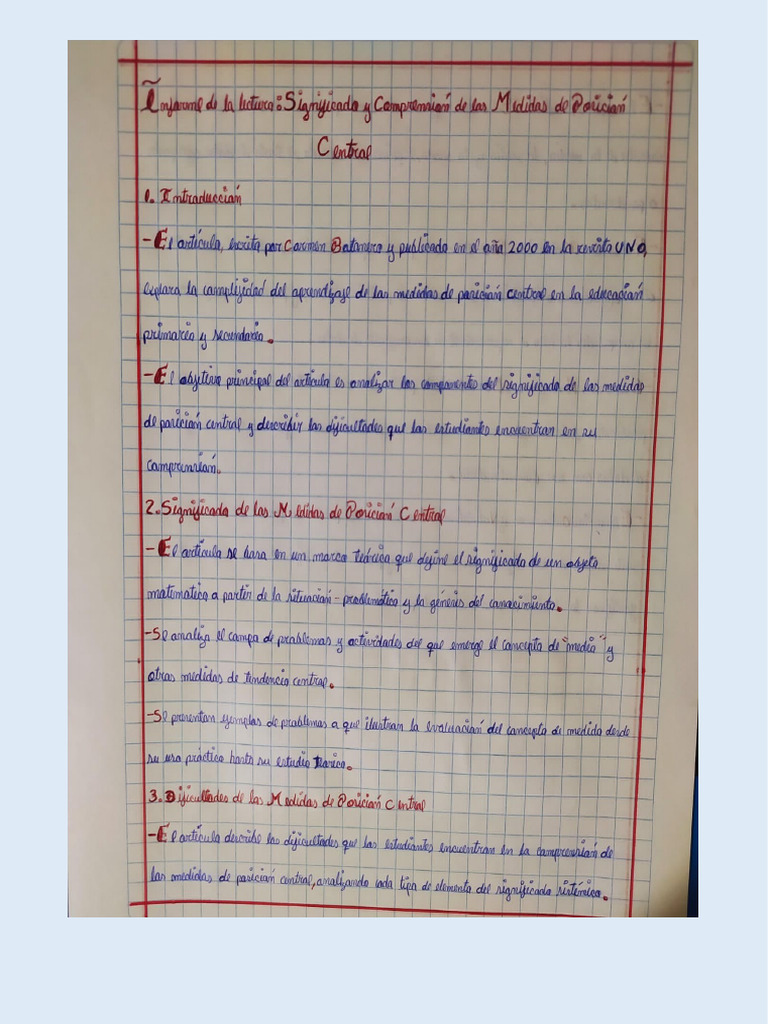 Informe de la lectura: Significado y Comprensión de las Medidas de Posición
Central
1. Introducción
- El artículo, escrito por Carmen Batanero y publicado en el año 2000 en la revista UNO,
explora la complejidad del aprendizaje de las medidas de posición central en la educación
primaria y secundaria.
- El objetivo principal del artículo es analizar los componentes del significado de las medidas
de posición central y describir las dificultades que los estudiantes encuentran en su
comprensión.
2. Significado de las Medidas de Posición Central
- El artículo se basa en un marco teórico que define el significado de un objeto
matematico a partir de la situación - problemática y la génesis del conocimiento.
- Se analiza el campo de problemas y actividades del que emerge el concepto de "media" y
otras medidas de tendencia central.
- Se presentan ejemplos de problemas a que ilustran la evaluación del concepto de medida desde
su uso práctico hasta su estudio teorico.
3. Dificultades de las Medidas de Posición Central
- El artículo describe las dificultades que los estudiantes encuentran en la comprensión de
las medidas de posición central, analizando cada tipo de elemento del significado sistémico.